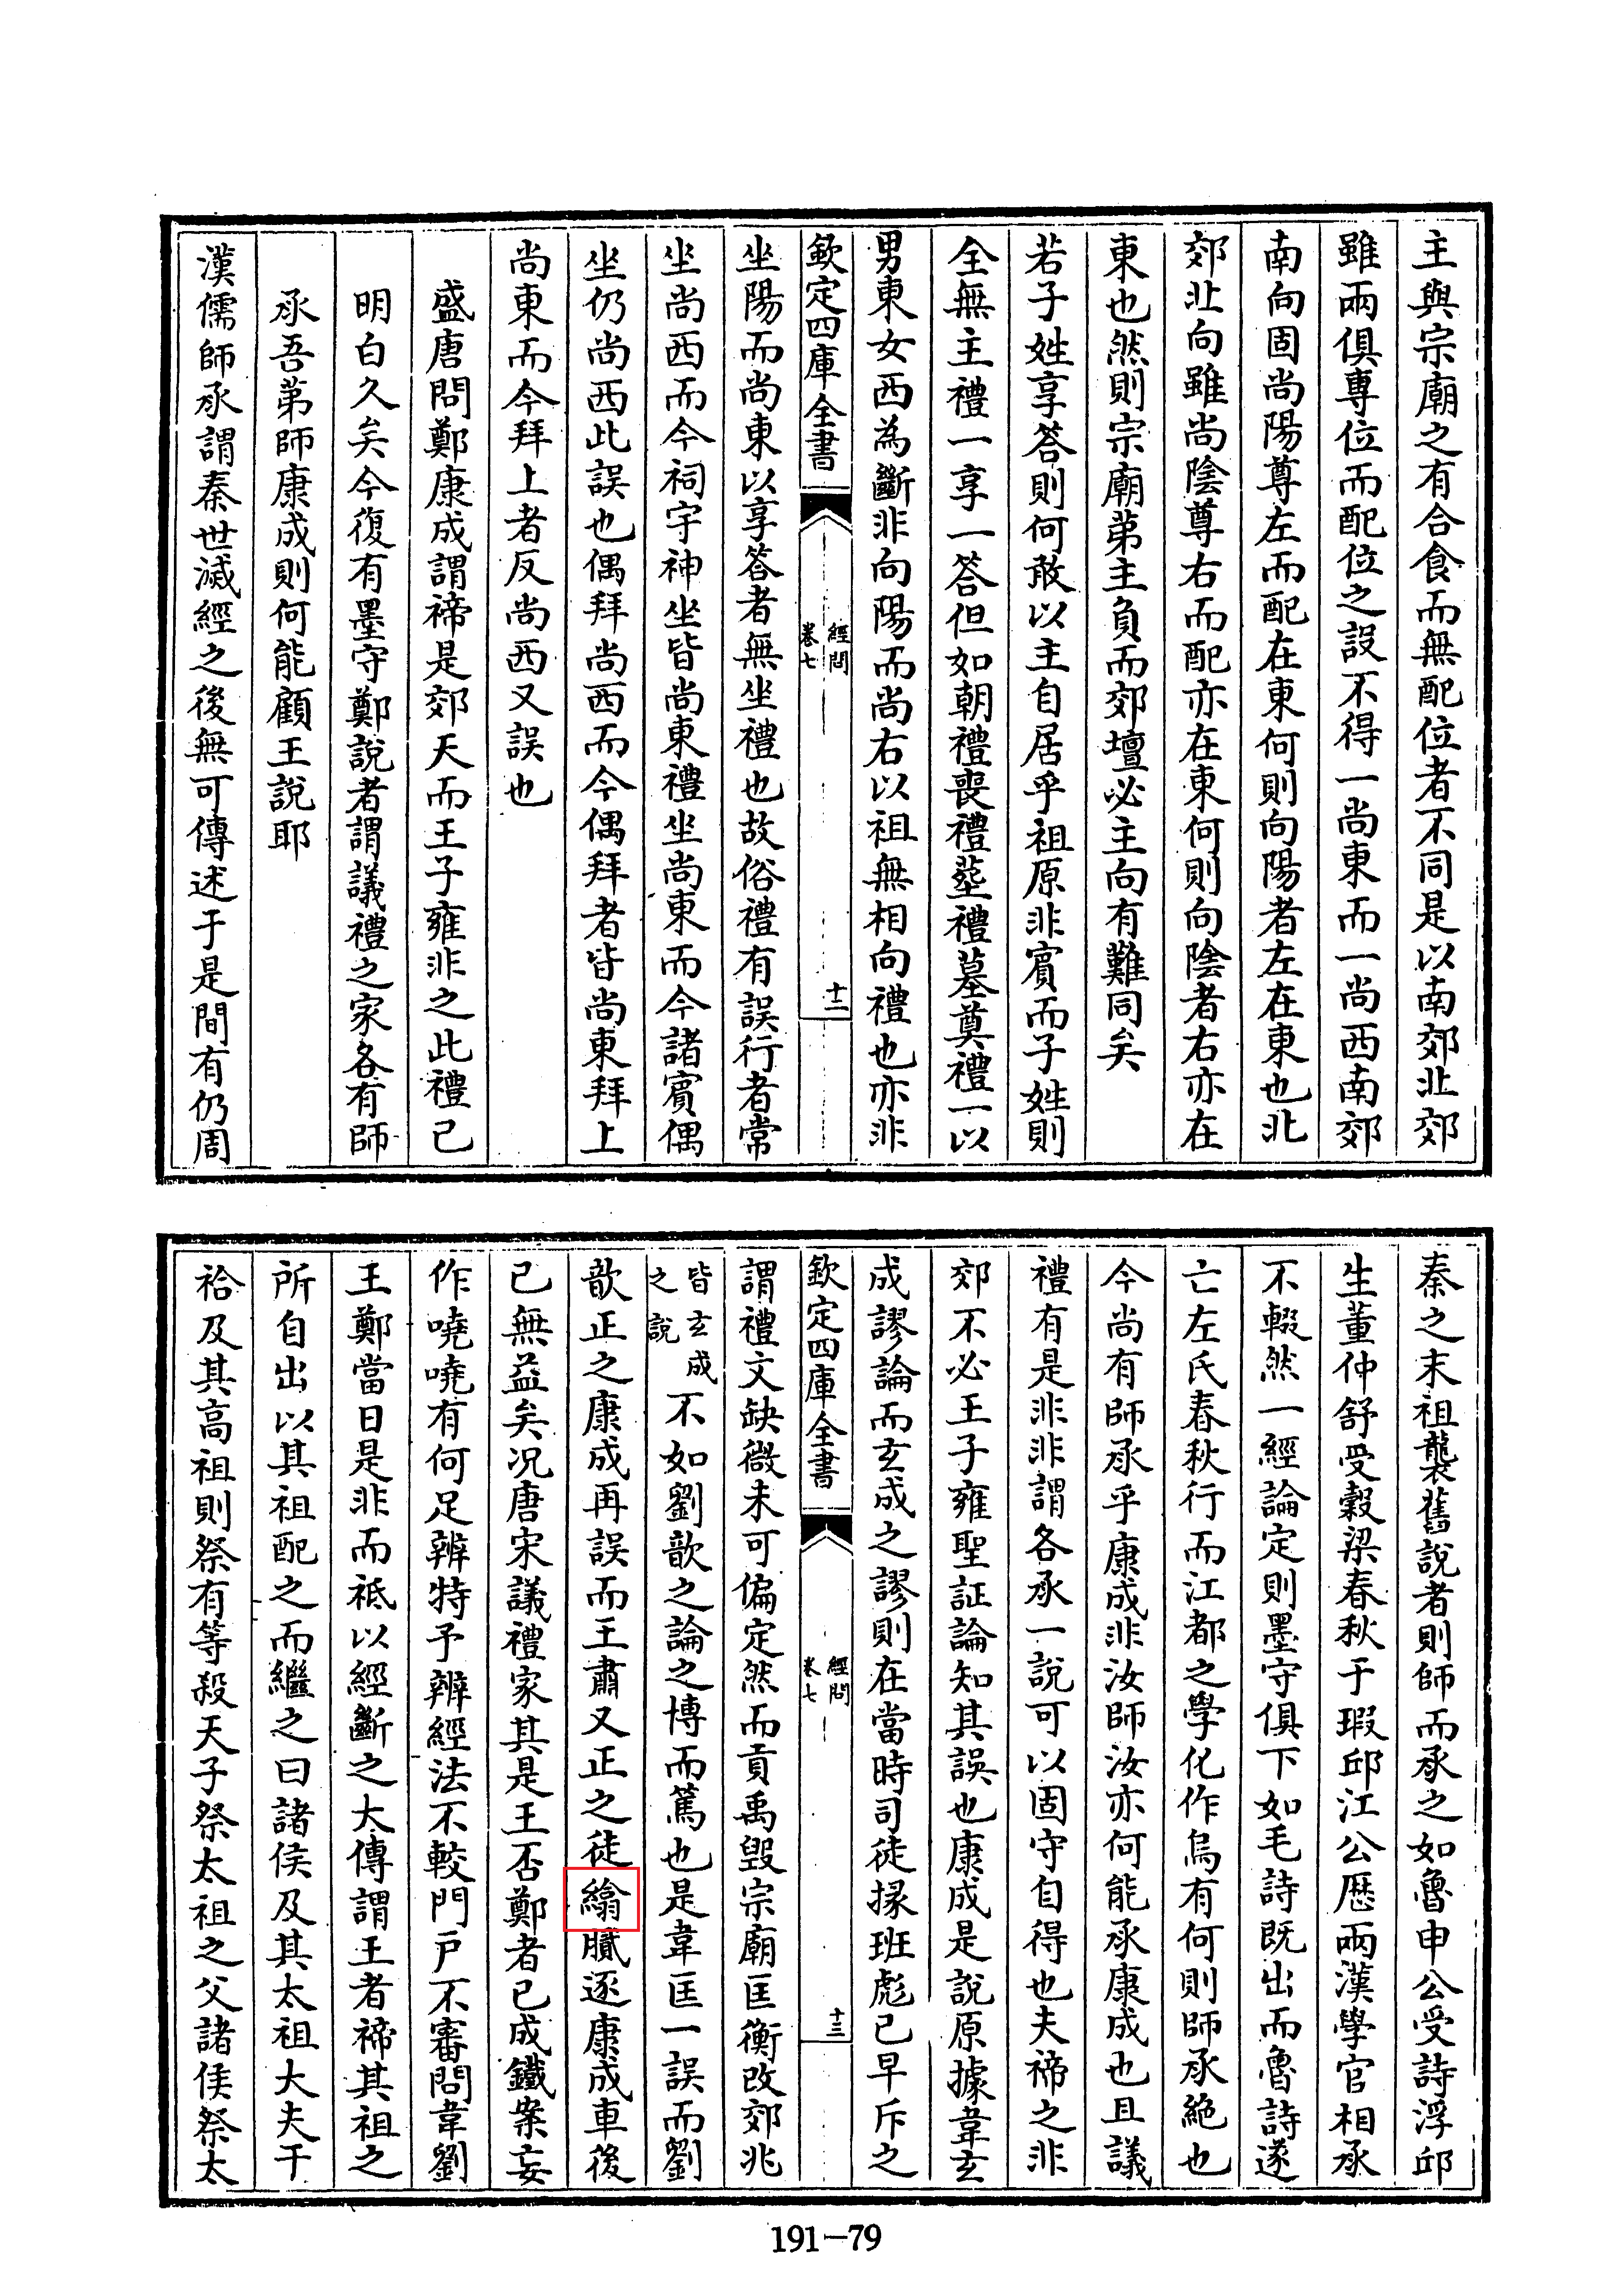 主與宗廟之有合食而無配位者不同是以南郊北郊
雖兩俱專位而配位之設不得一尚東而一尚西南郊
南向固尚陽尊左而配在東何則向陽者左在東也北
郊北向雖尚陰尊右而配亦在東何則向陰者右亦在
東也然則宗廟第主負而郊壇必主向有難同矣
若子姓享答則何敢以主自居乎祖原非賓而子姓則
全無主禮一享一答但如朝禮喪禮塟禮墓奠禮一以
男東女西為斷非向陽而尚右以祖無相向禮也亦非
欽定四庫全書
經問
卷七
十二
坐陽而尚東以享答者無坐禮也故俗禮有誤行者常
坐尚西而今祠宇神坐皆尚東禮坐尚東而今諸賓偶
坐仍尚西此誤也偶拜尚西而今偶拜者皆尚東拜上
尚東而今拜上者反尚西又誤也
盛唐問鄭康成謂禘是郊天而王子雍非之此禮已
明白久矣今復有墨守鄭說者謂議禮之家各有師
承吾第師康成則何能顧王說耶
漢儒師承謂秦世滅經之後無可傳述于是間有仍周
秦之末祖襲舊說者則師而承之如魯申公受詩浮邱
生董仲舒受穀梁春秋于瑕邱江公歷兩漢學官相承
不輟然一經論定則墨守俱下如毛詩既出而魯詩遂
亡左氏春秋行而江都之學化作烏有何則師承絶也
今尚有師承乎康成非汝師汝亦何能承康成也且議
禮有是非非謂各承一說可以固守自得也夫禘之非
郊不必王子雍聖証論知其誤也康成是說原據韋玄
成謬論而玄成之謬則在當時司徒掾班彪已早斥之
欽定四庫全書
經問
卷七
十三
謂禮文缺微未可偏定然而貢禹毀宗廟匡衡改郊兆
皆玄成之說不如劉歆之論之博而篤也是韋匡一誤而劉
歆正之康成再誤而王肅又正之徒縋膩逐康成車後
已無益矣况唐宋議禮家其是王否鄭者已成鐵案妄
作嘵嘵有何足辨特予辨經法不較門戶不審問韋劉
王鄭當日是非而祗以經斷之大傳謂王者禘其祖之
所自出以其祖配之而繼之曰諸侯及其太祖大夫干
祫及其高祖則祭有等殺天子祭太祖之父諸侯祭太
191-79